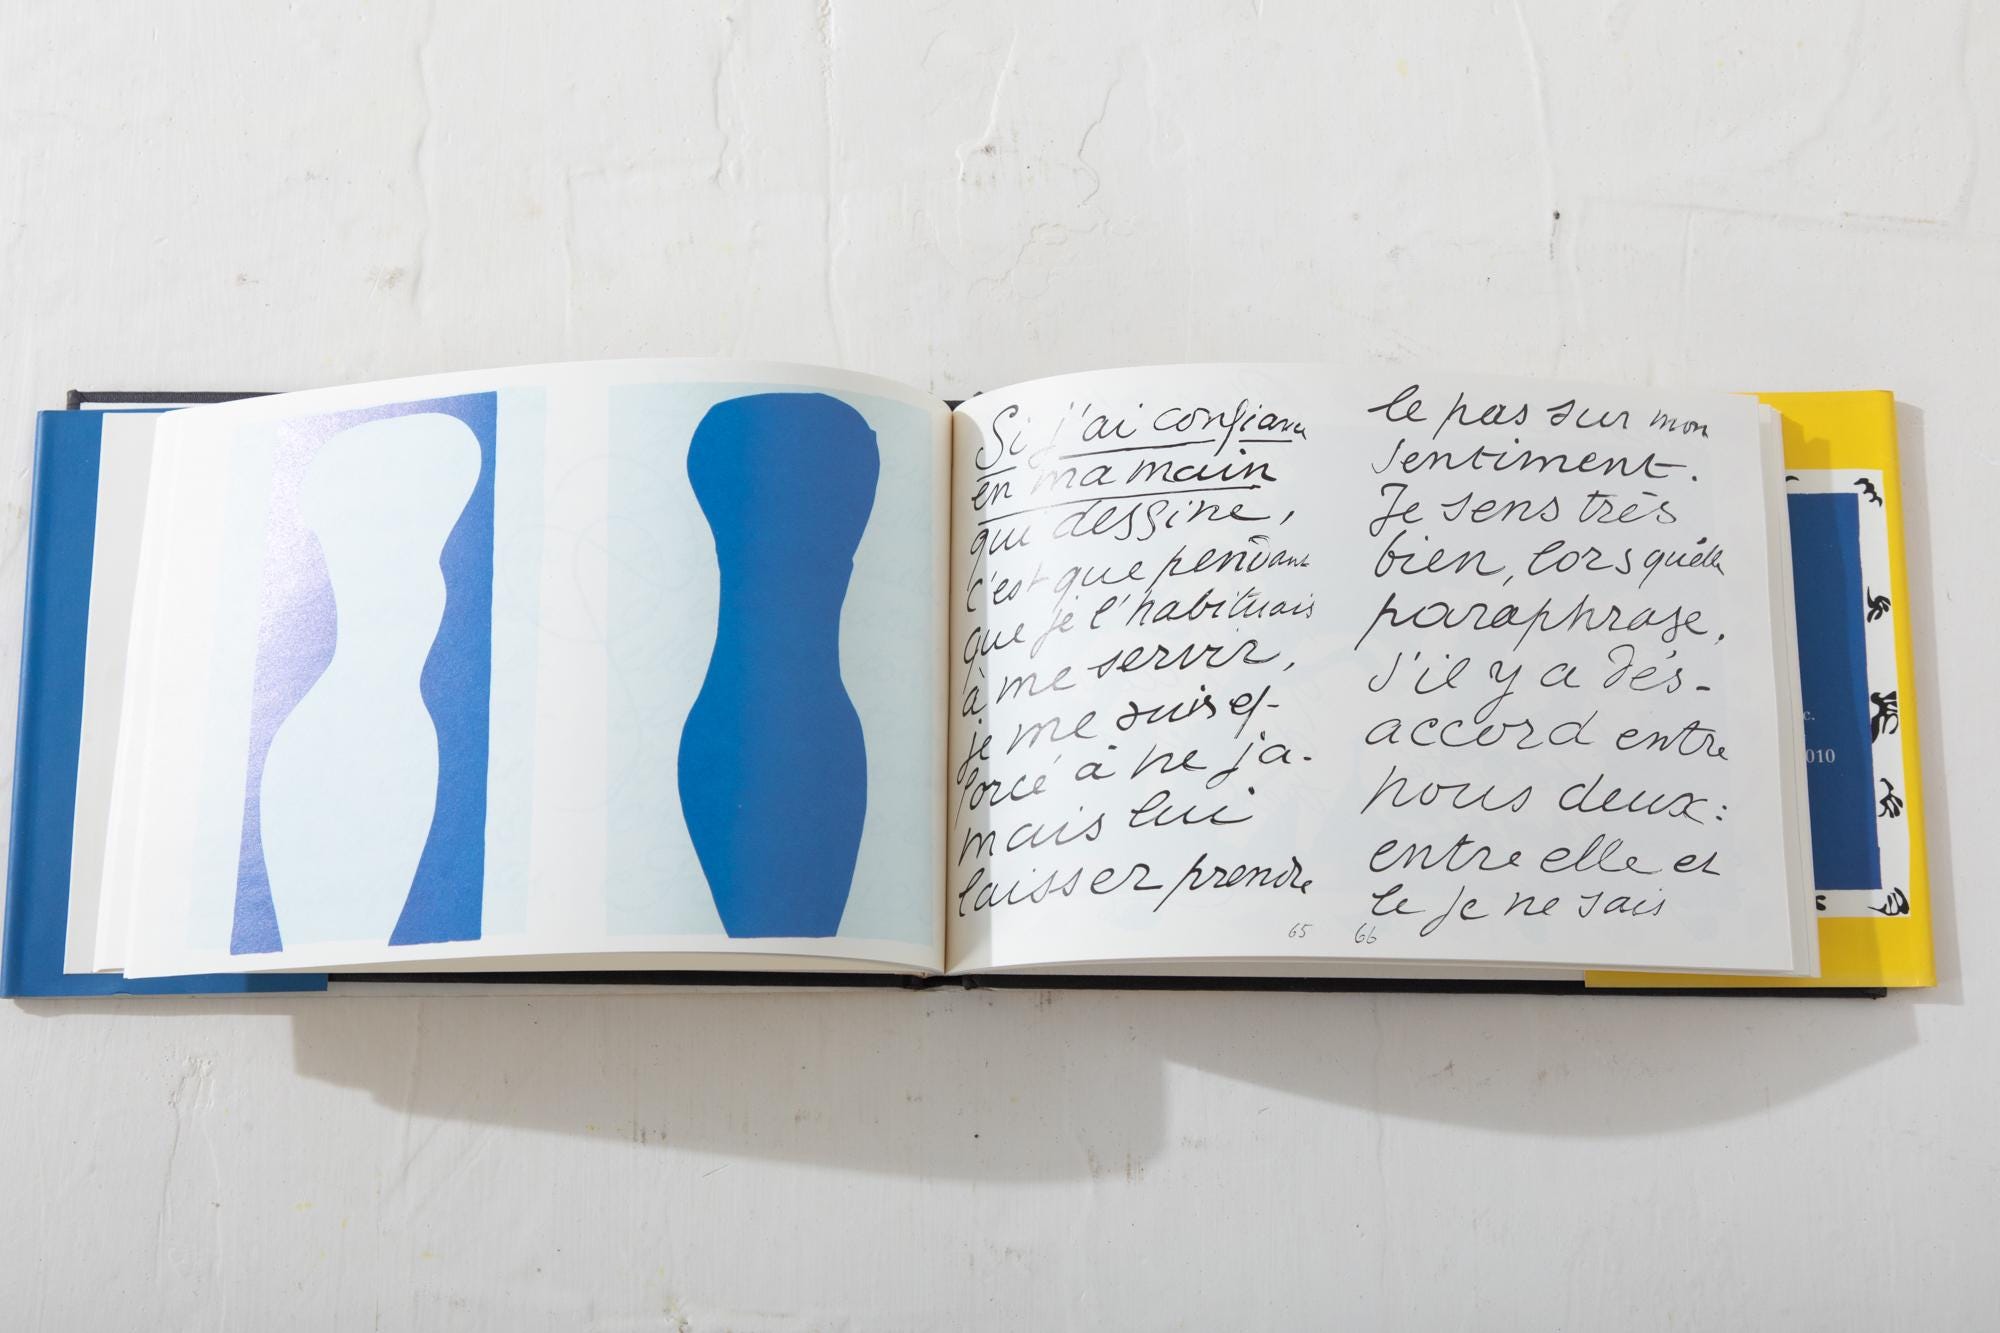 Si j'ai confiance
en ma main
qui dessine,
c'est que pendant
que je l'habituais
à me servir,
je me suis ef-
forcé à ne ja-
mais lui
laisser prendre
65
le pas sur mon
sentiment.
Je sens très
bien, lorsqu'elle
paraphrase,
s'il y a dés-
accord entre
nous deux:
entre elle et
le je ne sais
66
c.
010